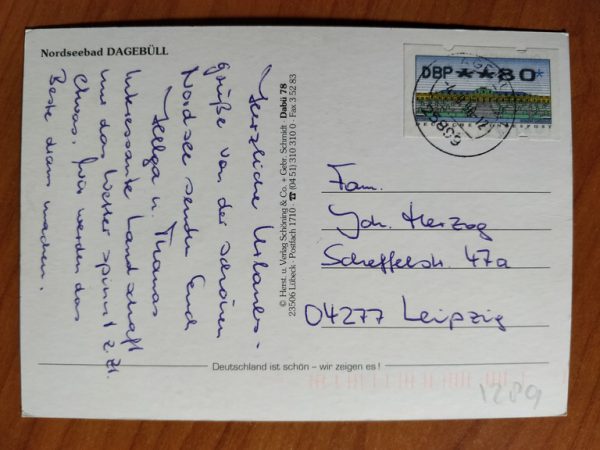 Nordseebad DAGEBÜLL
Herzliche Urlaubs-
grüße von der schönen
Nordsee senden Euch
Hellga u. Thomas
Interessante Landschaft
und das Wetter spinnt z.Zt.
Etwas, wir werden das
Beste dann machen.
© Herst. u. Verlag Schöning & Co. + Gebr. Schmidt · Dabü 78
23506 Lübeck · Postfach 1710 · ☎ (04 51) 310 310 0 · Fax 3 52 83
DBP**80*
25899
Fam.
Joh. Herzog
Scheffelstr. 47a
04277 Leipzig
Deutschland ist schön – wir zeigen es !
1289